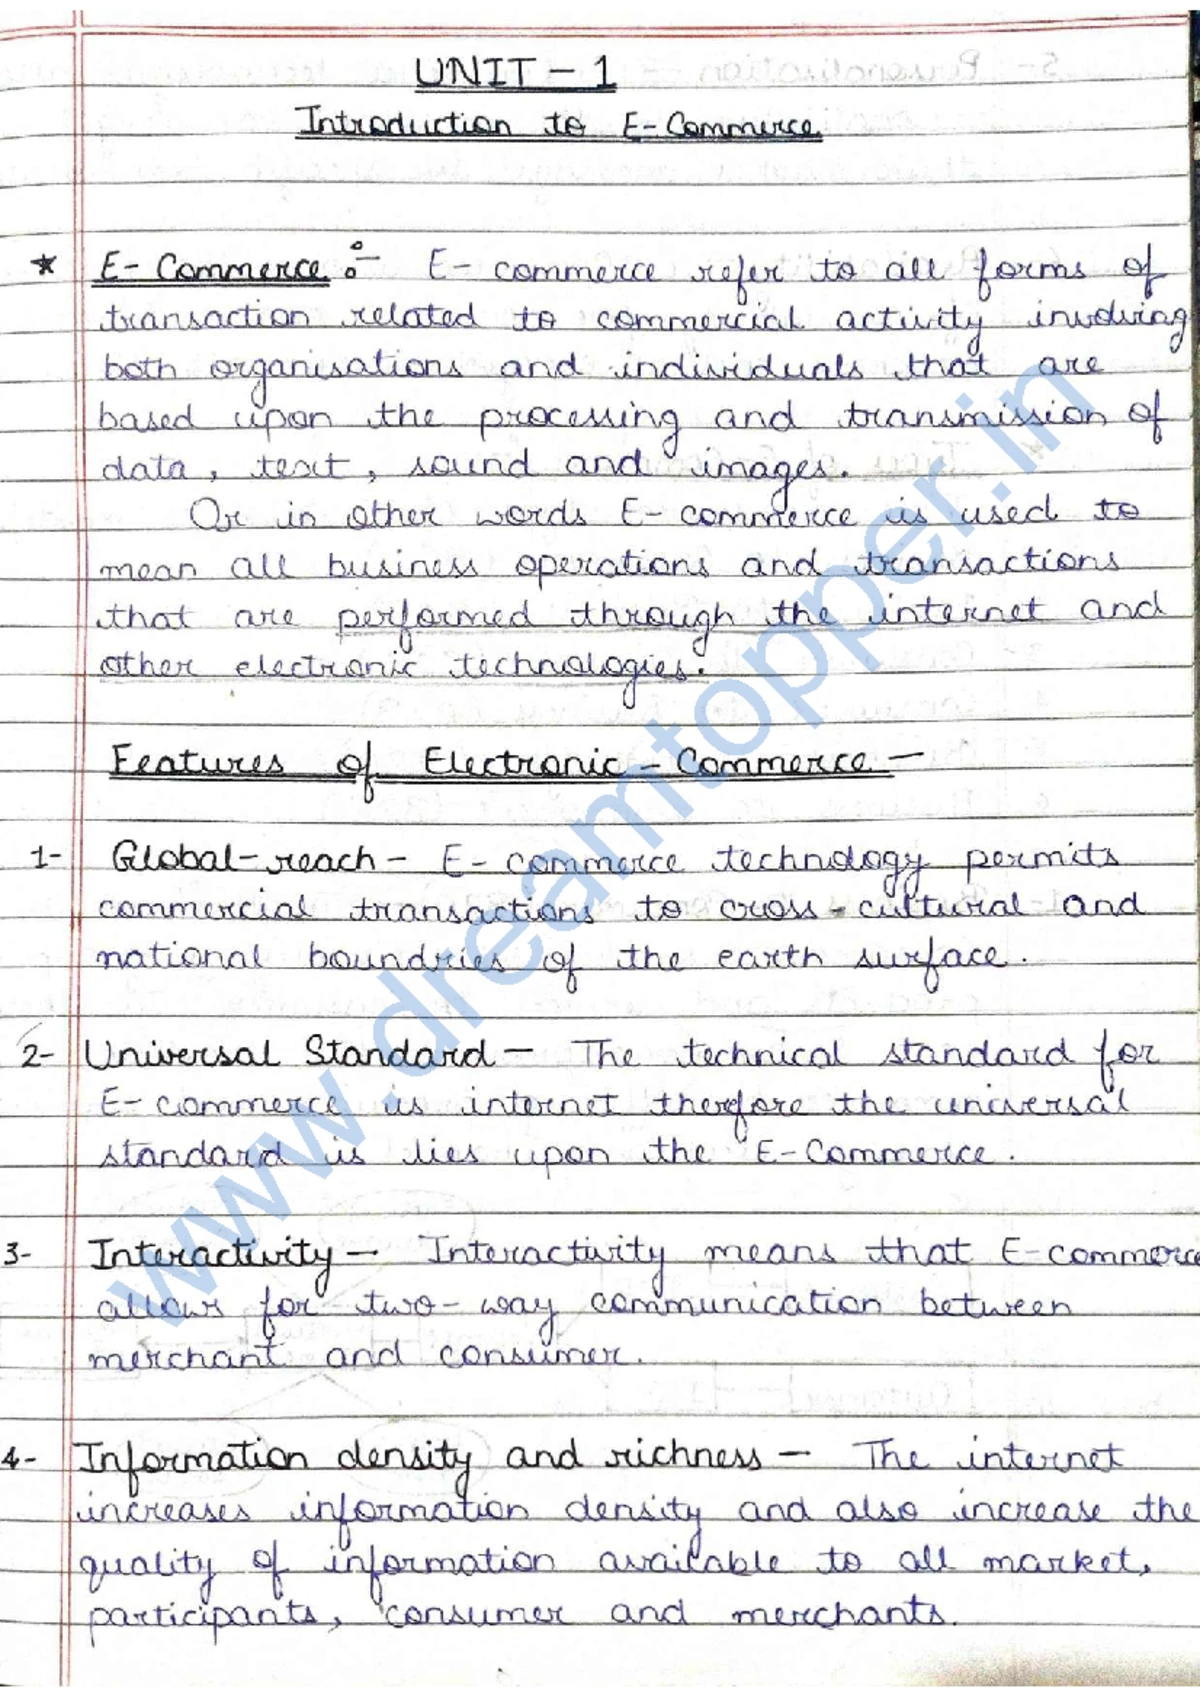 UNIT - 1
Introduction to E-Commerce
* E-Commerce :- E-commerce refer to all forms of
transaction related to commercial activity involving
both organisations and individuals that are
based upon the processing and transmission of
data, text, sound and images.
Or in other words E-commerce is used to
mean all business operations and transactions
that are performed through the internet and
other electronic technologies.
Features of Electronic - Commerce -
1- Global-reach - E-commerce technology permits
commercial transactions to cross-cultural and
national boundries of the earth surface.
2- Universal Standard - The technical standard for
E-commerce is internet therefore the universal
standard is lies upon the E-Commerce.
3- Interactivity - Interactivity means that E-commerce
allows for two-way communication between
merchant and consumer.
4- Information density and richness - The internet
increases information density and also increase the
quality of information available to all market,
participants, consumer and merchants.
www.dreamtopper.in